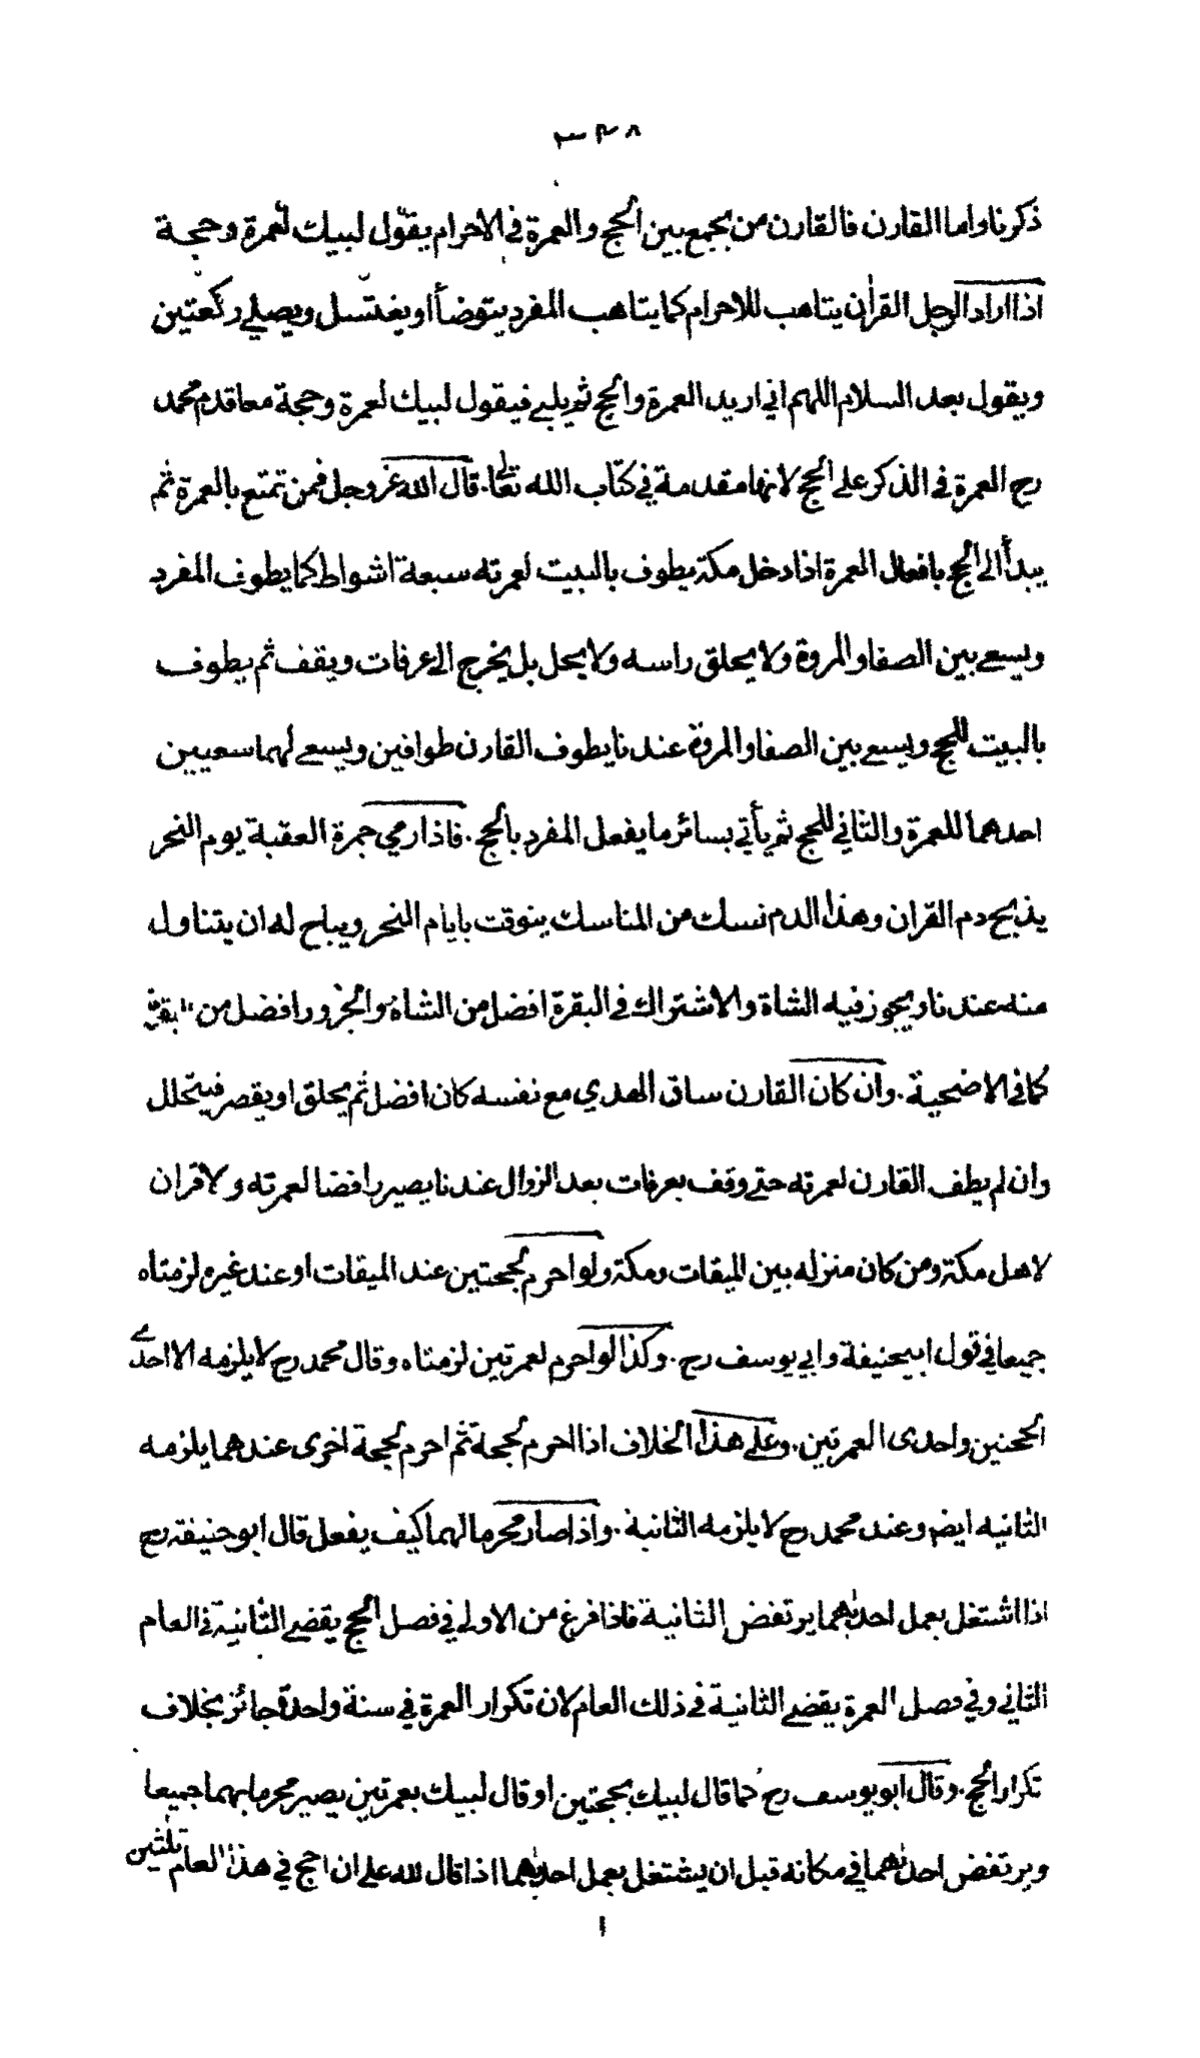 ٣٣٨
ذكرنا واما القارن فالقارن من يجمع بين الحج والعمرة في الاحرام يقول لبيك لعمرة وحجة
اذا اراد الرجل القران يتاهب للاحرام كما يتاهب المفرد يتوضأ او يغتسل ويصلي ركعتين
ويقول بعد السلام اللهم اني اريد العمرة والحج ثم يلبي فيقول لبيك لعمرة وحجة معا قدم محمد
رح العمرة في الذكر على الحج لانها مقدمة في كتاب الله تعالى. قال الله عز وجل فمن تمتع بالعمرة ثم
يبدأ الى الحج بافعال العمرة اذا دخل مكة يطوف بالبيت لعمرته سبعة اشواط كما يطوف المفرد
ويسعى بين الصفا والمروة ولا يحلق راسه ولا يحل بل يخرج الى عرفات ويقف ثم يطوف
بالبيت للحج ويسعى بين الصفا والمروة عندنا يطوف القارن طوافين ويسعى لهما سعيين
احدهما للعمرة والثاني للحج ثم يأتي بسائر ما يفعل المفرد بالحج. فاذا رمي جمرة العقبة يوم النحر
يذبح دم القران وهذا الدم نسك من المناسك يتوقت بايام النحر ويباح له ان يتناول
منه عندنا ويجوز فيه الشاة والاشتراك في البقرة افضل من الشاة والجزور افضل من البقرة
كما في الاضحية. وان كان القارن ساق الهدي مع نفسه كان افضل ثم يحلق او يقصر فيتحلل
وان لم يطف القارن لعمرته حتى وقف بعرفات بعد الزوال عندنا يصير رافضا لعمرته ولا قران
لاهل مكة ومن كان منزله بين الميقات ومكة ولو احرم لحجتين عند الميقات او عند غيره لزمتاه
جميعا في قول ابيحنيفة وابي يوسف رح. وكذا لو احرم لعمرتين لزمتاه وقال محمد رح لا يلزمه الا احدى
الحجتين واحدى العمرتين. وعلى هذا الخلاف اذا احرم لحجة ثم احرم لحجة اخرى عندهما يلزمه
الثانية ايضا وعند محمد رح لا يلزمه الثانية. واذا صار محرما لهما كيف يفعل قال ابو حنيفة رح
اذا اشتغل بعمل احدٰهما يرتفض الثانية فاذا فرغ من الاولى في فصل الحج يقضى الثانية في العام
الثاني وفي فصل العمرة يقضى الثانية في ذلك العام لان تكرار العمرة في سنة واحدة جائز بخلاف
تكرار الحج. وقال ابو يوسف رح كما قال لبيك بحجتين او قال لبيك بعمرتين يصير محرما بهما جميعا
ويرتفض احدٰهما في مكانه قبل ان يشتغل بعمل احدٰهما اذا قال لله علي ان احج في هذا العام ثلثين